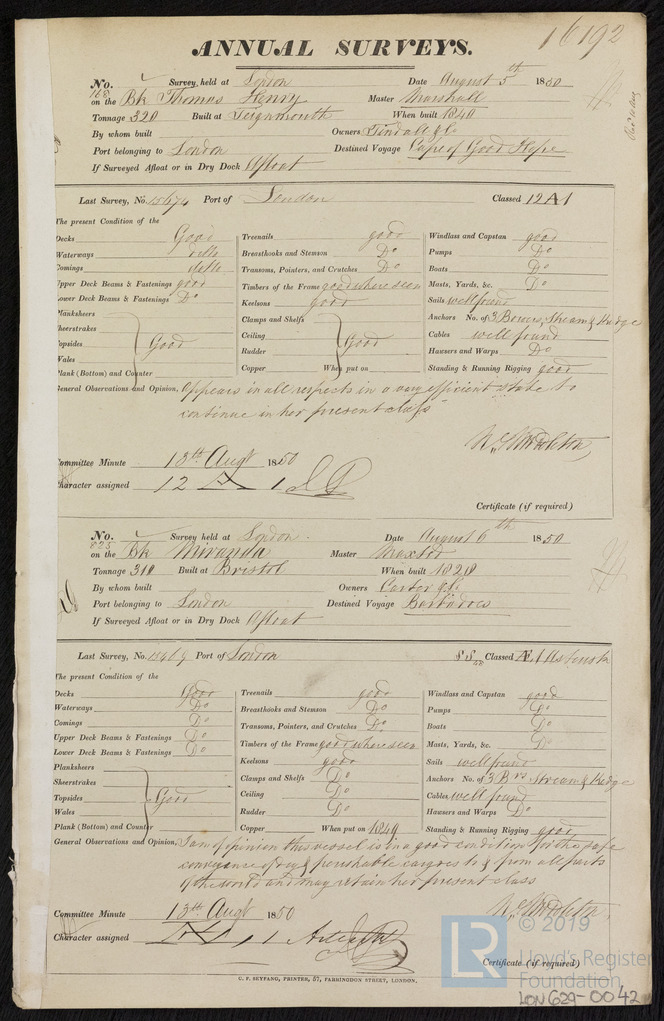 ANNUAL SURVEYS. 16192
No. 168 Survey, held at London Date August 5th 1850
on the Bk Thomas Henry Master Marshall
Tonnage 320 Built at Teignmouth When built 1840
By whom built Owners Tindall & Co
Port belonging to London Destined Voyage Cape of Good Hope
If Surveyed Afloat or in Dry Dock Afloat
Last Survey, No. 15674 Port of London Classed 12 A 1
The present Condition of the
Decks Good Treenails good Windlass and Capstan good
Waterways ditto Breasthooks and Stemson Do Pumps Do
Comings ditto Transoms, Pointers, and Crutches Do Boats Do
Upper Deck Beams & Fastenings good Timbers of the Frame good where seen Masts, Yards, &c. Do
Lower Deck Beams & Fastenings Do Keelsons good Sails well found
Planksheers Clamps and Shelfs Anchors No. of 3 Bowers, Stream & Kedge
Sheerstrakes Ceiling Cables well found
Topsides Good Rudder Good Hawsers and Warps Do
Wales Copper When put on Standing & Running Rigging good
Plank (Bottom) and Counter
General Observations and Opinion, Appears in all respects in a very efficient state to
continue in her present class
Wm Middleton
Committee Minute 13th Augt 1850
Character assigned 12 A 1
Certificate (if required)
No. 825 Survey held at London Date August 6th 1850
on the Bk Miranda Master Maxted
Tonnage 310 Built at Bristol When built 1820
By whom built Owners Carter & Co
Port belonging to London Destined Voyage Barbadoes
If Surveyed Afloat or in Dry Dock Afloat
Last Survey, No. Port of London Classed Æ 1 Asterisk
The present Condition of the
Decks Good Treenails good Windlass and Capstan good
Waterways Do Breasthooks and Stemson Do Pumps Do
Comings Do Transoms, Pointers, and Crutches Do Boats Do
Upper Deck Beams & Fastenings Do Timbers of the Frame good where seen Masts, Yards, &c. Do
Lower Deck Beams & Fastenings Do Keelsons good Sails well found
Planksheers Clamps and Shelfs Do Anchors No. of 3 Brs Stream & Kedge
Sheerstrakes Ceiling Do Cables well found
Topsides Good Rudder Do Hawsers and Warps Do
Wales Copper When put on 1849 Standing & Running Rigging good
Plank (Bottom) and Counter
General Observations and Opinion, I am of opinion this vessel is in a good condition for the safe
conveyance of dry & perishable cargoes to & from all parts
of the world and may retain her present class
Wm Middleton
Committee Minute 13th Augt 1850
Character assigned Æ 1
Certificate (if required)
C. F. SEYFANG, PRINTER, 57, FARRINGDON STREET, LONDON.
© 2019
LR Lloyd's Register
Foundation
LON 629-0042